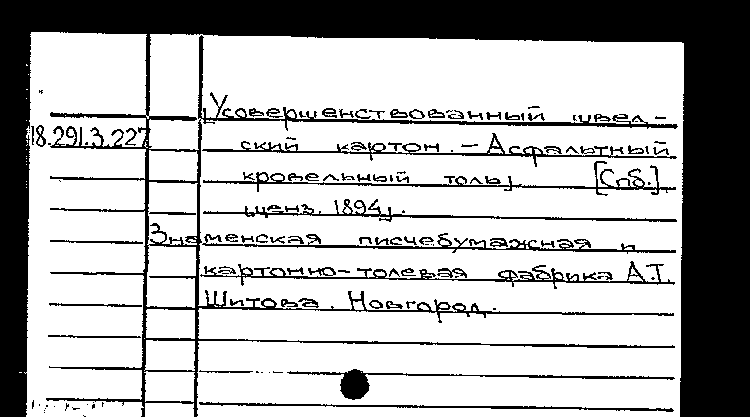 [Усовершенствованный швед-
18.291.3.227
ский картон. - Асфальтный
кровельный толь] [Спб.],
ценз. 1894].
Знаменская писчебумажная и
картонно-толевая фабрика А.Т.
Шитова. Новгород.